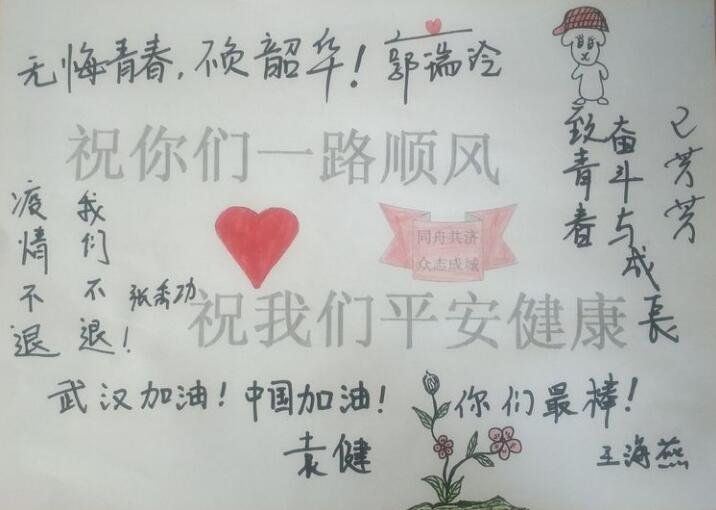 无悔青春，不负韶华！郭瑞玲
祝你们一路顺风
致青春
奋斗与成长
疫情不退
我们不退！
张秀功
同舟共济
众志成城
祝我们平安健康
武汉加油！中国加油！
袁健
你们最棒！
王海燕